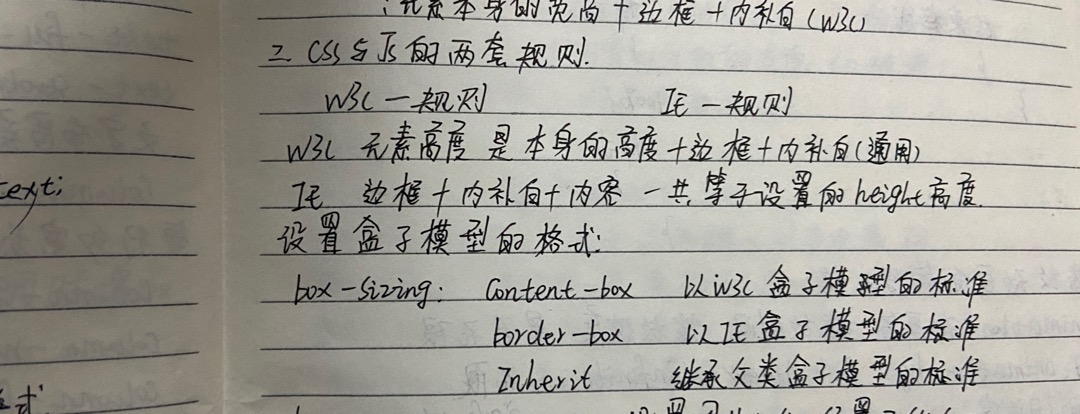 元素本身的宽高+边框+内补白(W3C)
二 CSS与JS的两套规则.
W3C 一规则 IE 一规则
W3C 元素高度 是本身的高度+边框+内补白(通用)
IE 边框+内补白+内容 一共等于设置的height高度.
text;
设置盒子模型的格式:
box-sizing: Content-box 以W3C盒子模型的标准
border-box 以IE盒子模型的标准
Inherit 继承父类盒子模型的标准
式